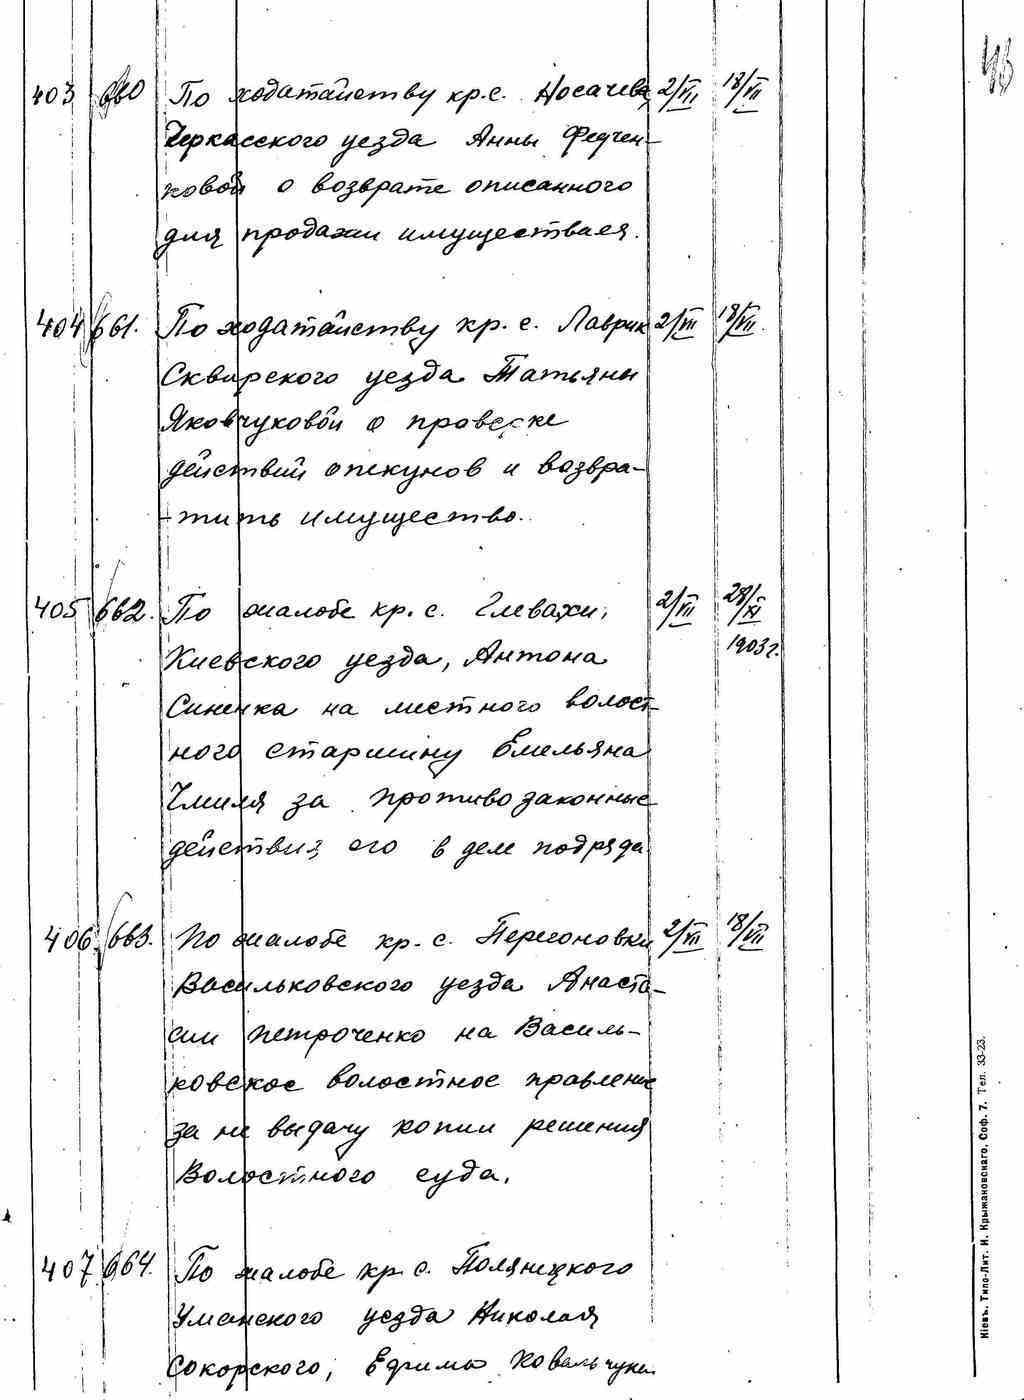 43
403 660 По ходатайству кр. с. Носачева 2/VII 18/VII
Черкасского уезда Анны Федчен-
ковой о возврате описанного
для продажи имущества ея.
404 661. По ходатайству кр. с. Лаврик 2/VII 18/VII.
Сквирского уезда Татьяны
Яковчуковой о проверке
действий опекунов и возвра-
тить имущество.
405 662. По жалобе кр. с. Глевахи, 2/VII 28/XI
1903 г.
Киевского уезда, Антона
Синенка на местного волост-
ного старшину Емельяна
Чмиля за противозаконные
действия его в деле подряда
406. 663. По жалобе кр. с. Пересоновки 2/VII 18/VII
Васильковского уезда Анаста-
сии Петроченко на Василь-
ковское волостное правление
за не выдачу копии решения
Волостного суда.
407 664. По жалобе кр. с. Поляницкого
Уманского уезда Николая
Сокорского, Ефима Ковальчука
Кіевъ. Типо-Лит. И. Крыжановскаго, Соф. 7. Тел. 33-23.